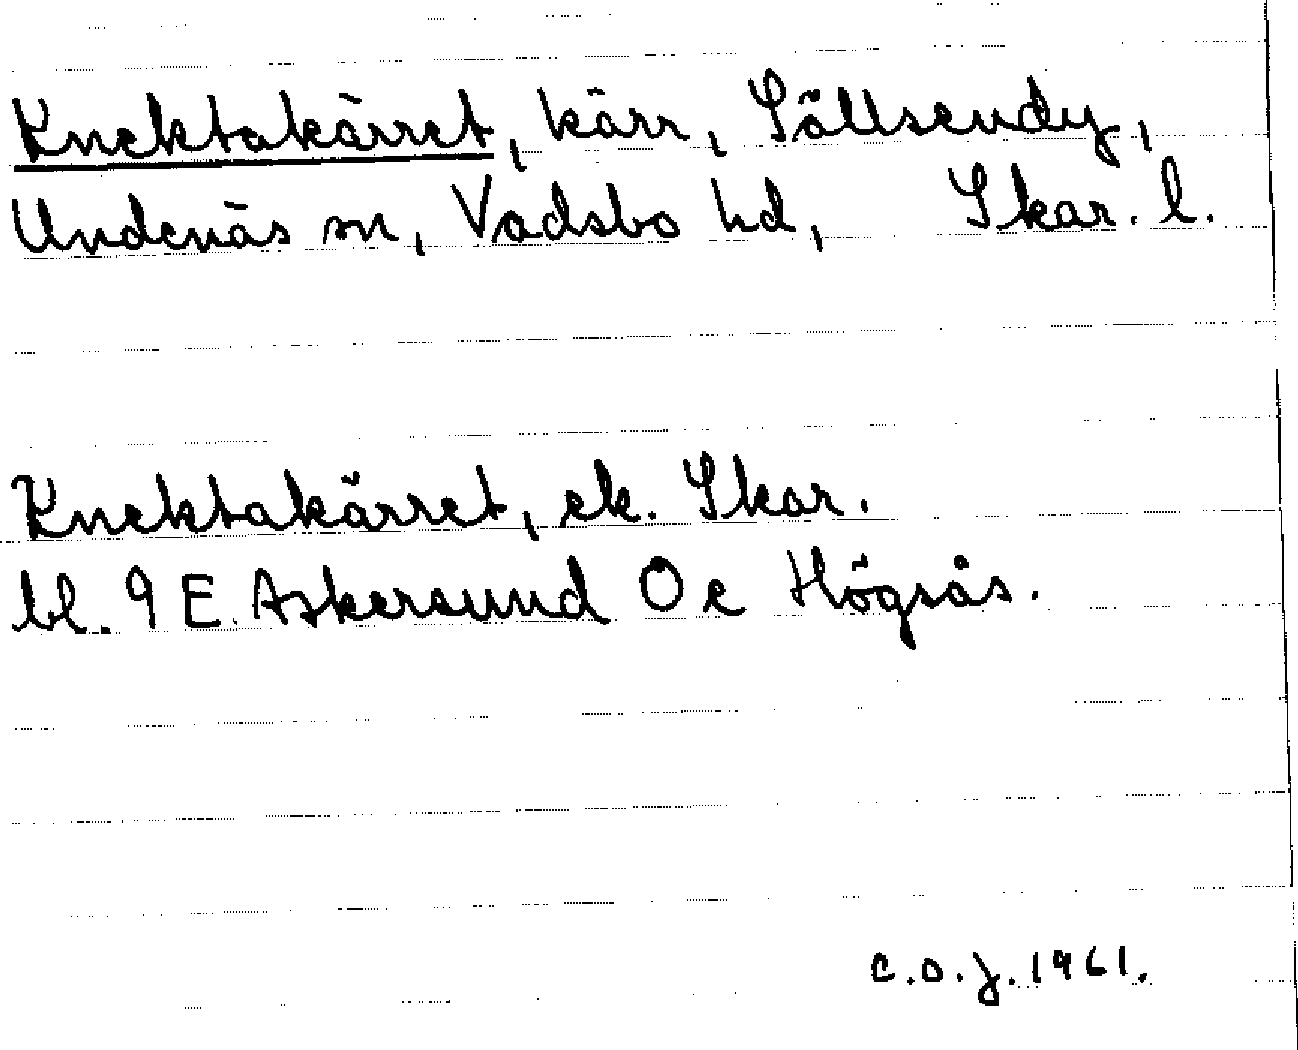 Knektakärret, kärr, Sällsendy,
Undenäs sn, Vadsbo hd, Skar. l.
Knektakärret, ek. Skar.
bl. 9 E. Askersund O e Högsås.
C.O.J. 1961.